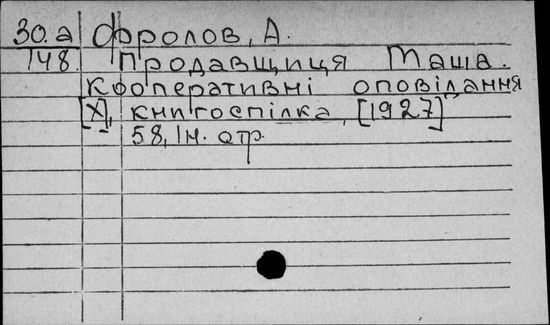 30.а Фролов, А.
148 Продавщиця Маша.
Кооперативні оповідання
[Х], Книгоспілка, [1927]
58, 1 н. стр.